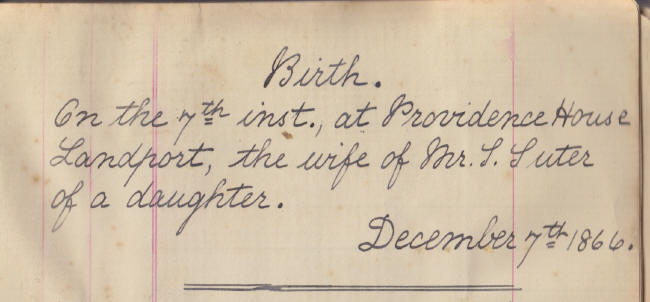 Birth.
On the 7th inst., at Providence House
Landport, the wife of Mr. S. Suter
of a daughter.
December 7th 1866.